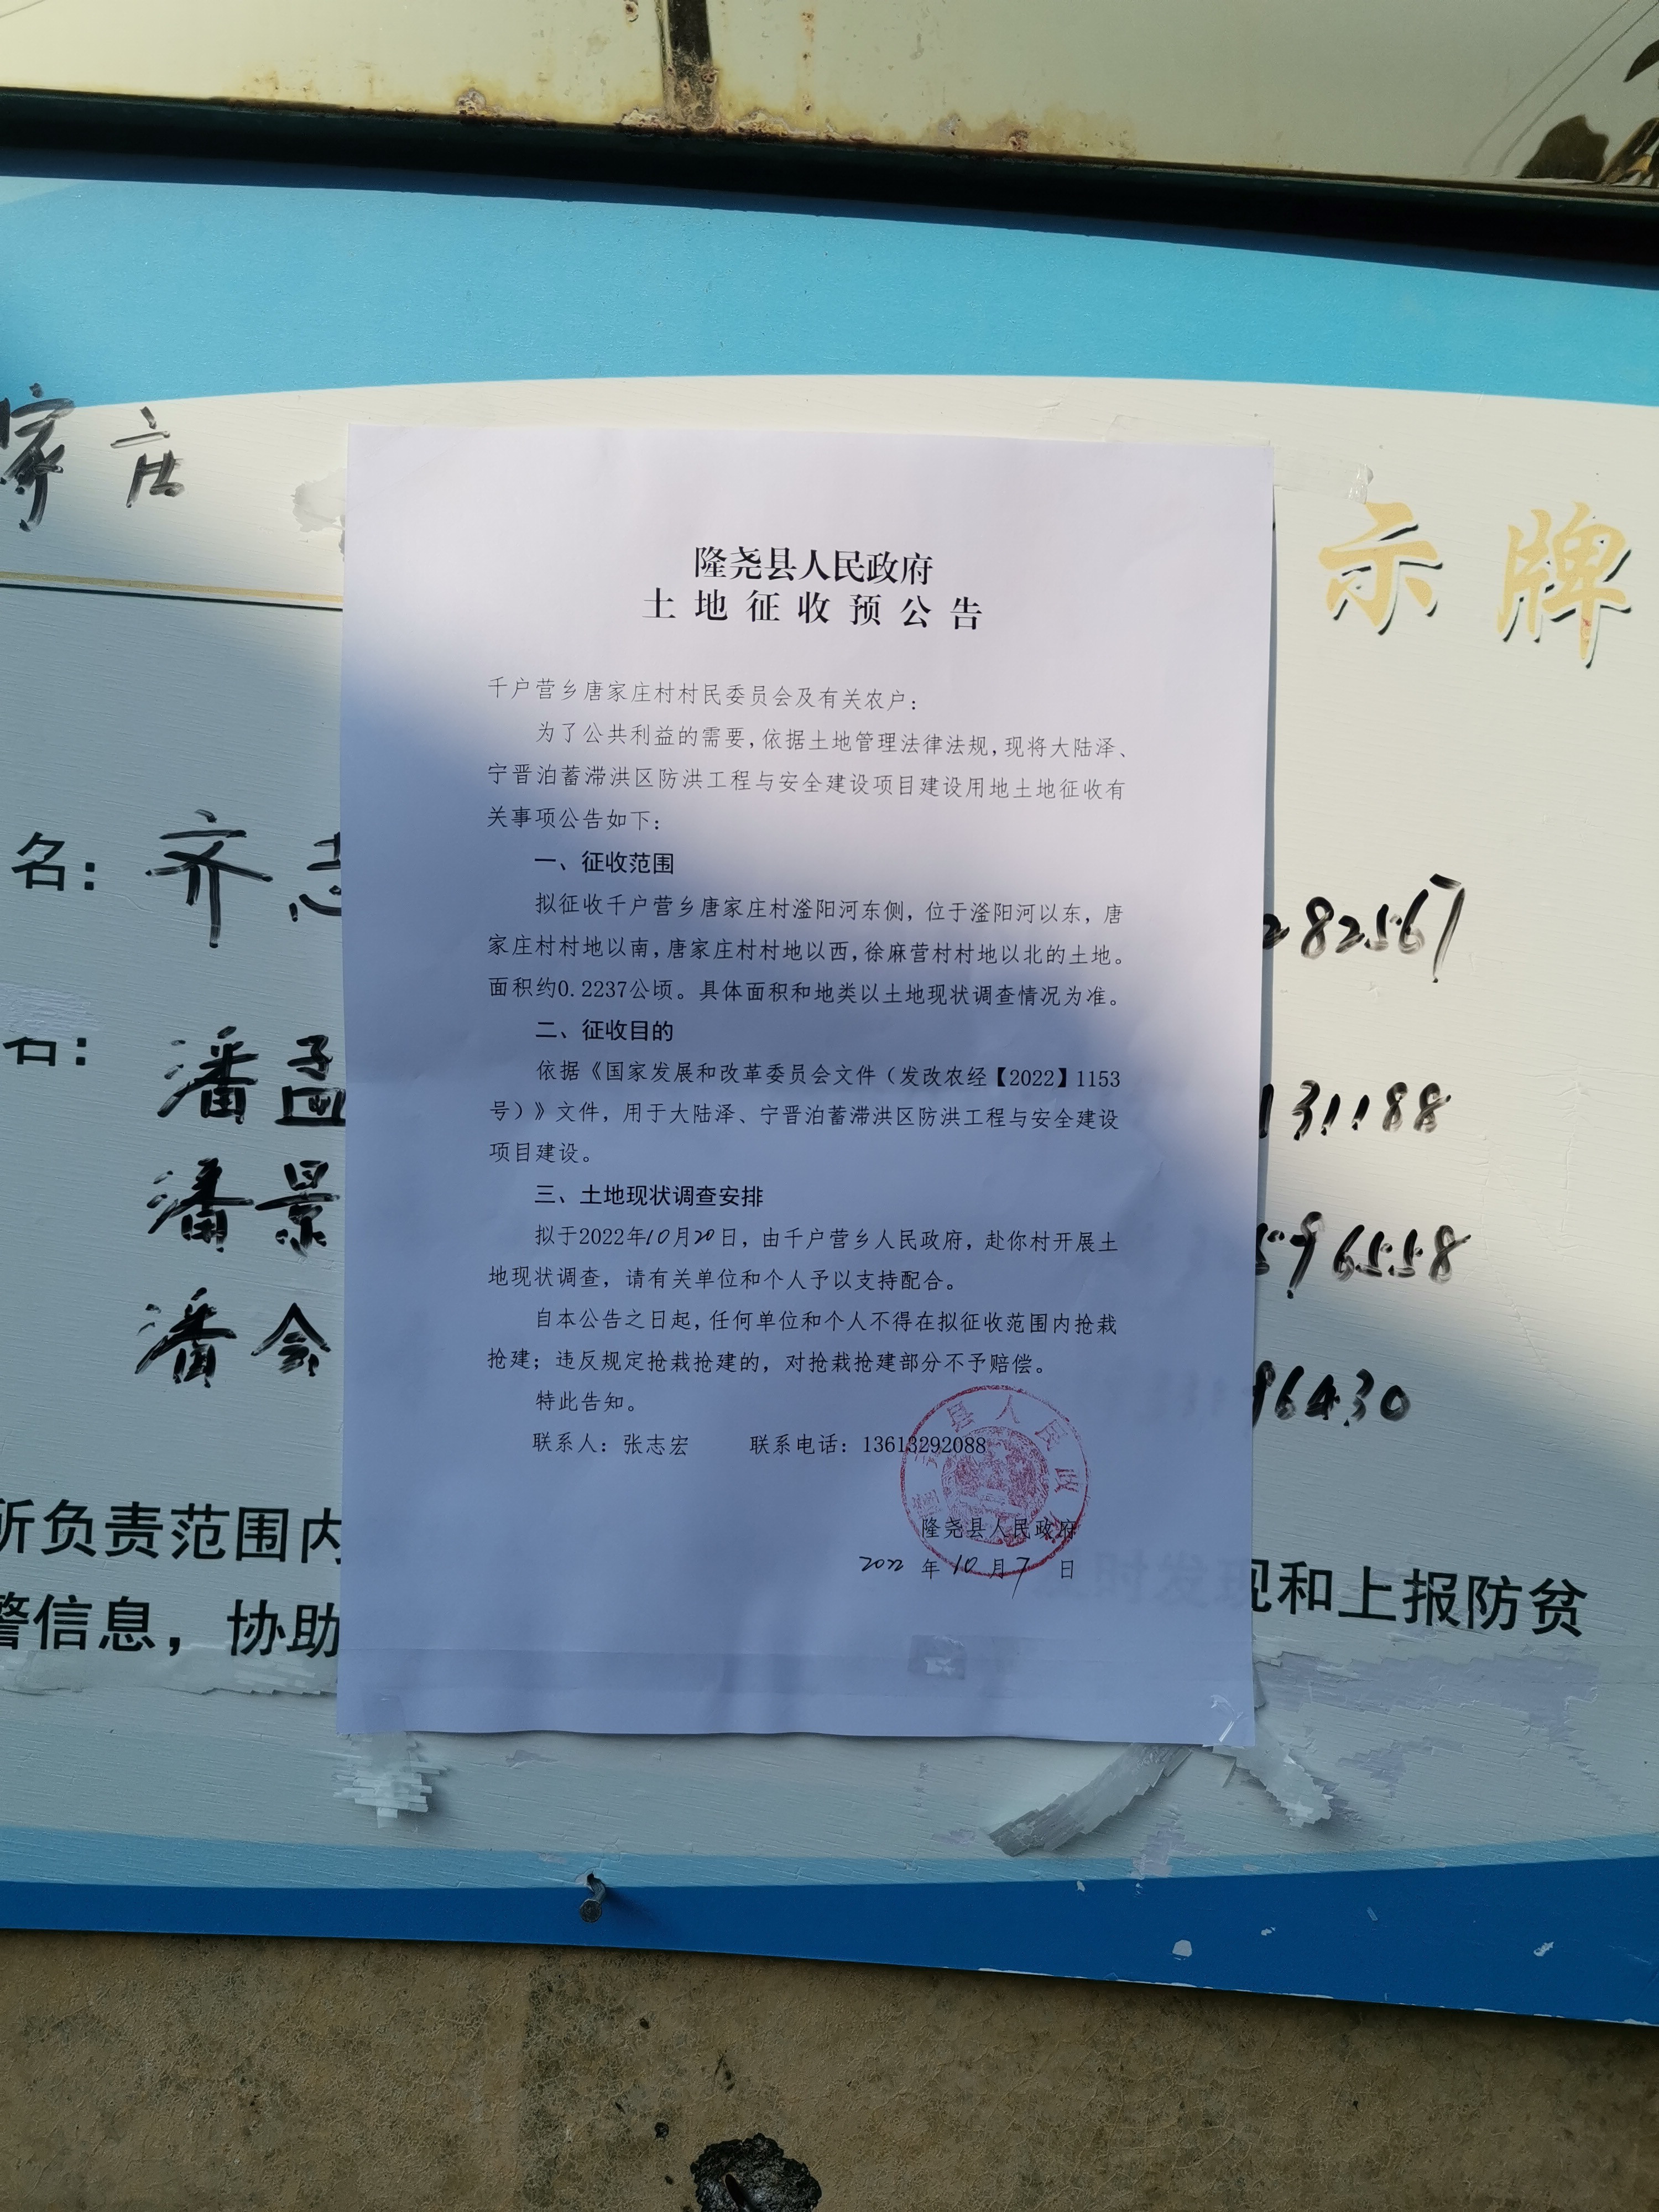 家庄
示牌
隆尧县人民政府
土地征收预公告
千户营乡唐家庄村村民委员会及有关农户：
为了公共利益的需要，依据土地管理法律法规，现将大陆泽、
宁晋泊蓄滞洪区防洪工程与安全建设项目建设用地土地征收有
关事项公告如下：
一、征收范围
拟征收千户营乡唐家庄村滏阳河东侧，位于滏阳河以东，唐
家庄村村地以南，唐家庄村村地以西，徐麻营村村地以北的土地。
面积约0.2237公顷。具体面积和地类以土地现状调查情况为准。
二、征收目的
依据《国家发展和改革委员会文件（发改农经【2022】1153
号）》文件，用于大陆泽、宁晋泊蓄滞洪区防洪工程与安全建设
项目建设。
三、土地现状调查安排
拟于2022年10月20日，由千户营乡人民政府，赴你村开展土
地现状调查，请有关单位和个人予以支持配合。
自本公告之日起，任何单位和个人不得在拟征收范围内抢栽
抢建；违反规定抢栽抢建的，对抢栽抢建部分不予赔偿。
特此告知。
联系人：张志宏 联系电话：13613292088
隆尧县人民政府
2022年10月7日
名：齐志
282567
名：潘孟
131188
潘景
596558
潘会
96430
所负责范围内
时发现和上报防贫
警信息，协助